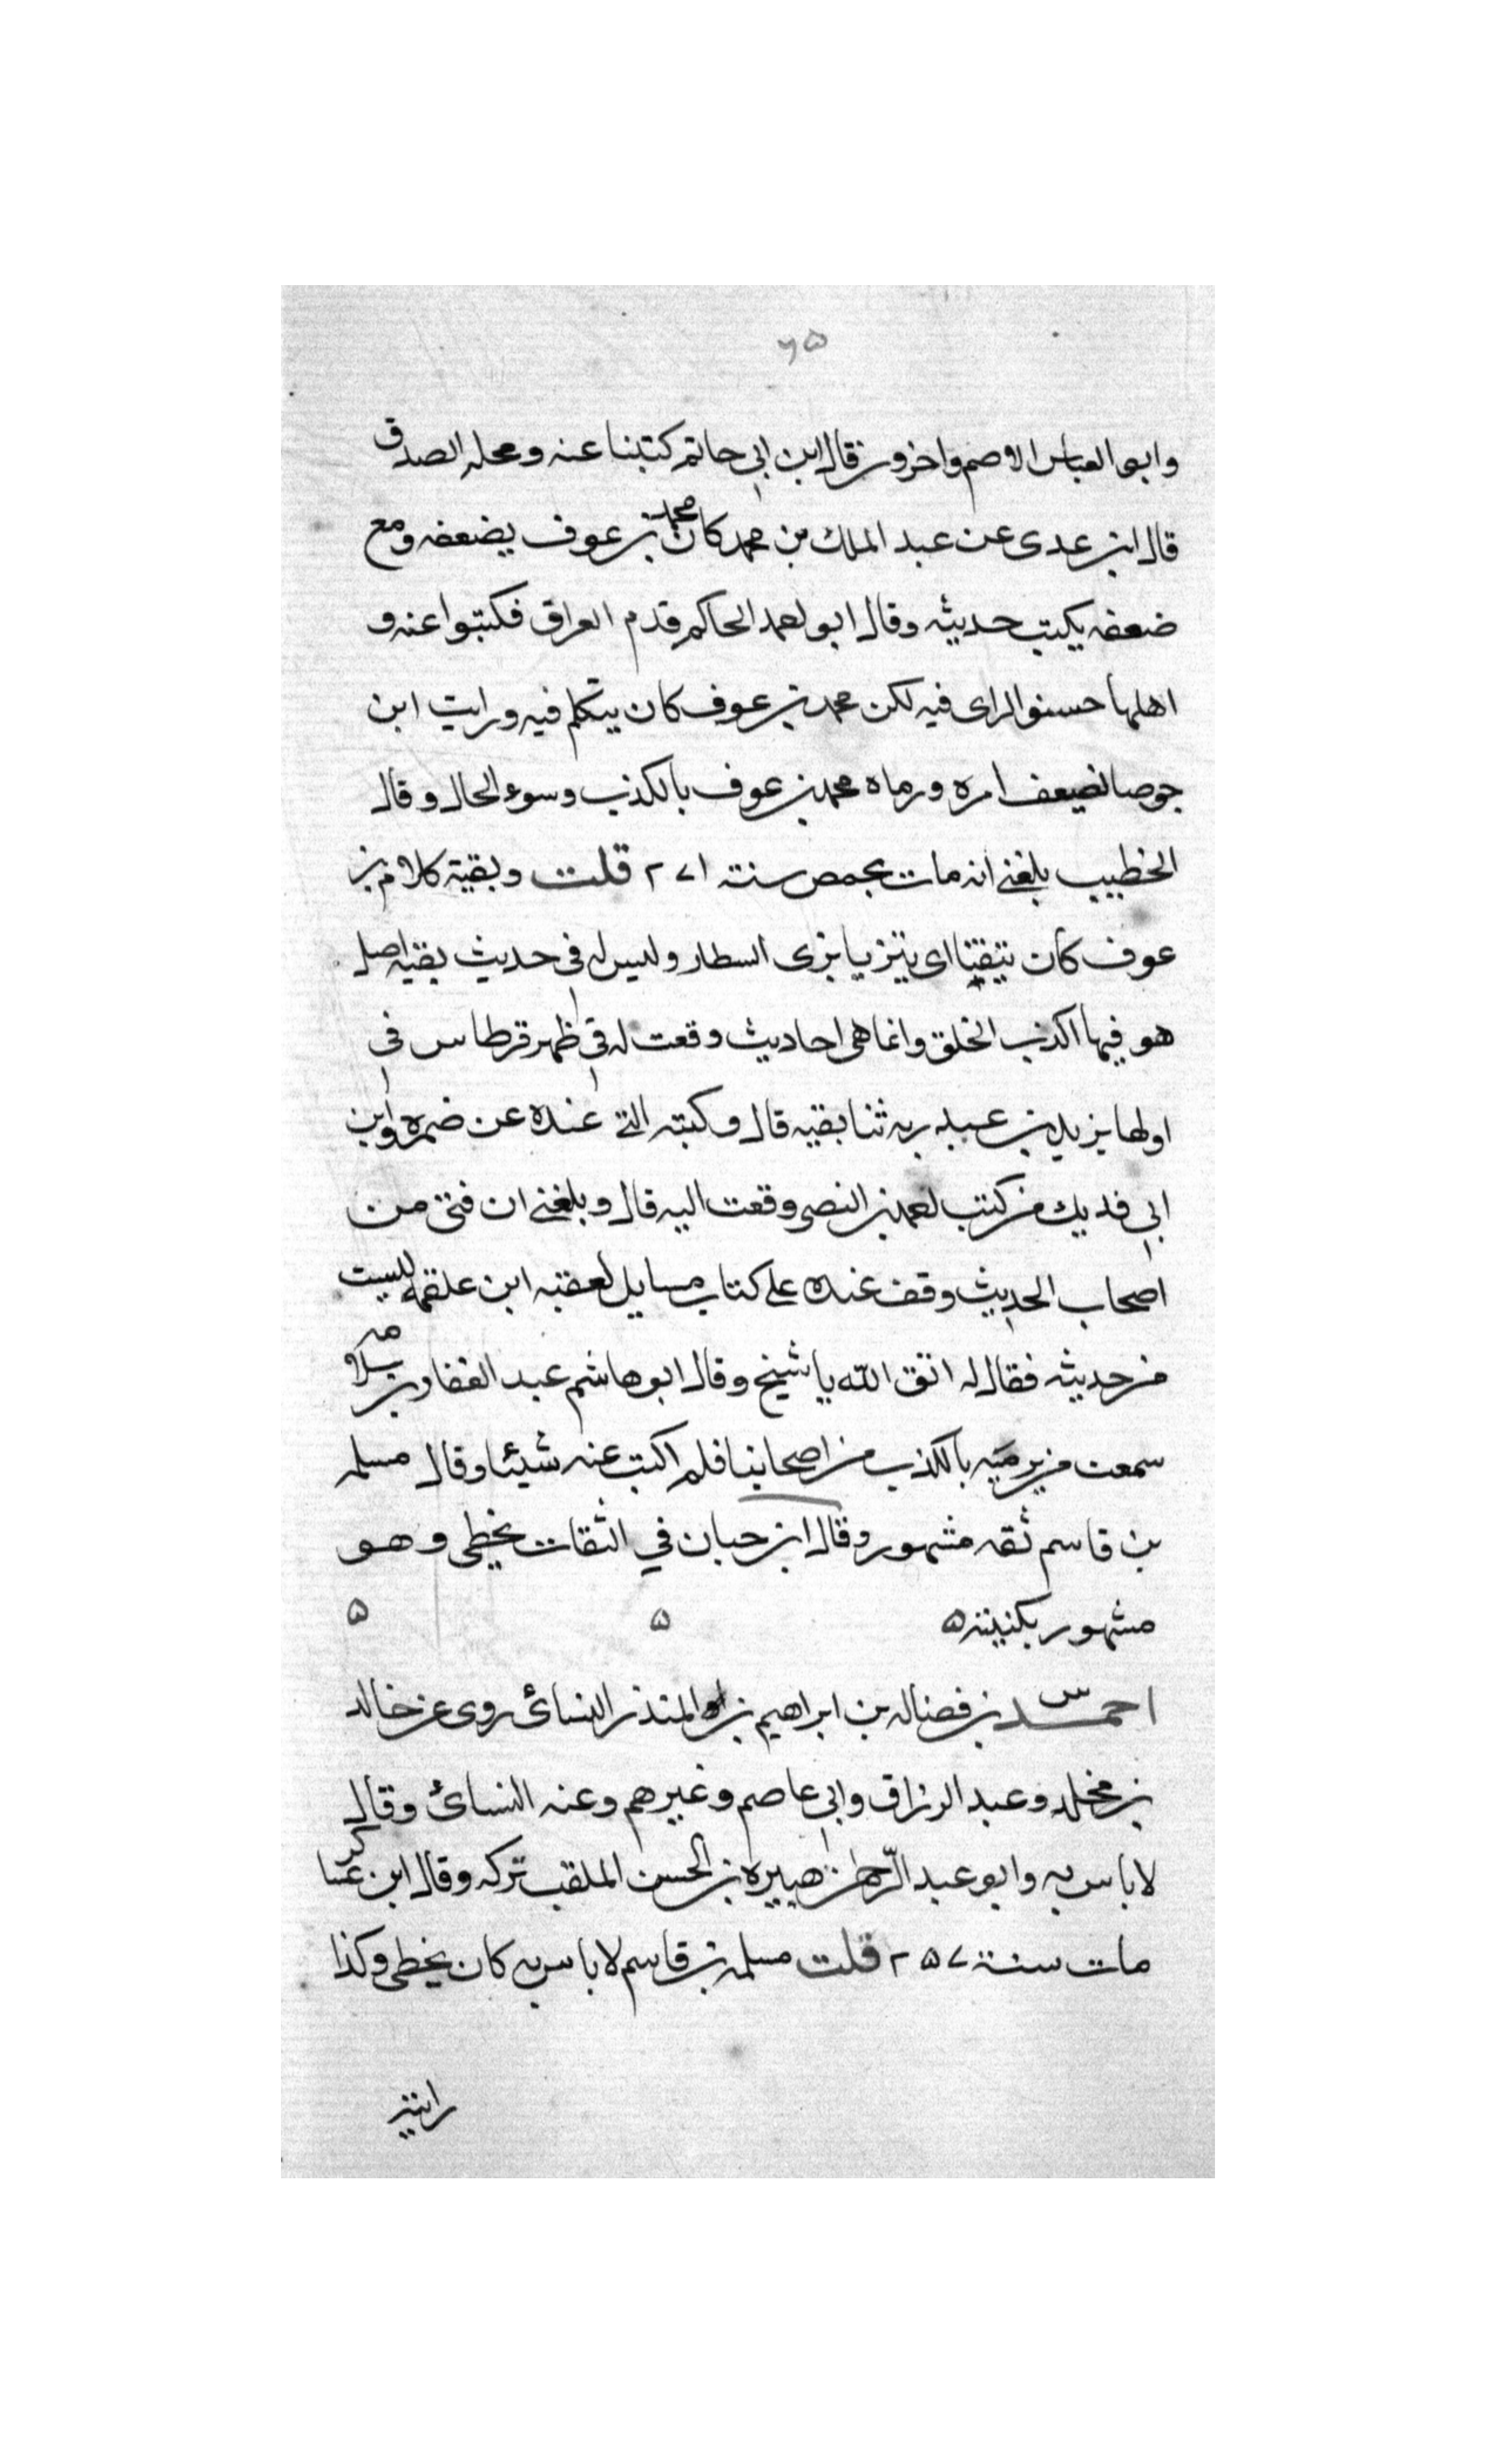 ٦٥
وابو العباس الاصم واخرون قال ابن ابي حاتم كتبنا عنه ومحله الصدق
قال ابن عدى عن عبد الملك بن محمد كان محمد بن عوف يضعفه ومع
ضعفه يكتب حديثه وقال ابو احمد الحاكم قدم العراق فكتبوا عنه و
اهلها حسنو الراى فيه لكن محمد بن عوف كان يتكلم فيه ورايت ابن
جوصا يضعف امره ورماه محمد بن عوف بالكذب وسوء الحال وقال
الخطيب بلغني انه مات بحمص سنة ٢٧١ قلت وبقية كلام بن
عوف كان يتفتا اى يتزيا بزى السطار وليس له في حديث بقيه اصل
هو فيها اكذب الخلق وانما هى احاديث وقعت له في ظهر قرطاس في
اولها يزيد بن عبد ربه ثنا بقيه قال وكتبه التي عنده عن ضمره وابن
ابي فديك من كتب احمد بن النصر وقعت اليه قال وبلغني ان فتى من
اصحاب الحديث وقف عنده على كتاب مسايل لعقبه ابن علقمه ليست
من حديثه فقال له اتق الله يا شيخ وقال ابو هاشم عبد الغفار بن سلامه
سمعت من يرميه بالكذب من اصحابنا فلم اكتب عنه شيئا وقال مسلمه
بن قاسم ثقه مشهور وقال ابن حبان في الثقات يخطى وهو
مشهور بكنيته ه ه ه
احمد س بن فضاله بن ابراهيم ابو المنذر النسائى روى عن خالد
بن مخلد وعبد الرزاق وابي عاصم وغيرهم وعنه النسائى وقال
لا باس به وابو عبد الرحمن هبيره بن الحسن الملقب تركه وقال ابن عساكر
مات سنة ٢٥٧ قلت مسلمه بن قاسم لا باس به كان يخطى وكذا
رايته